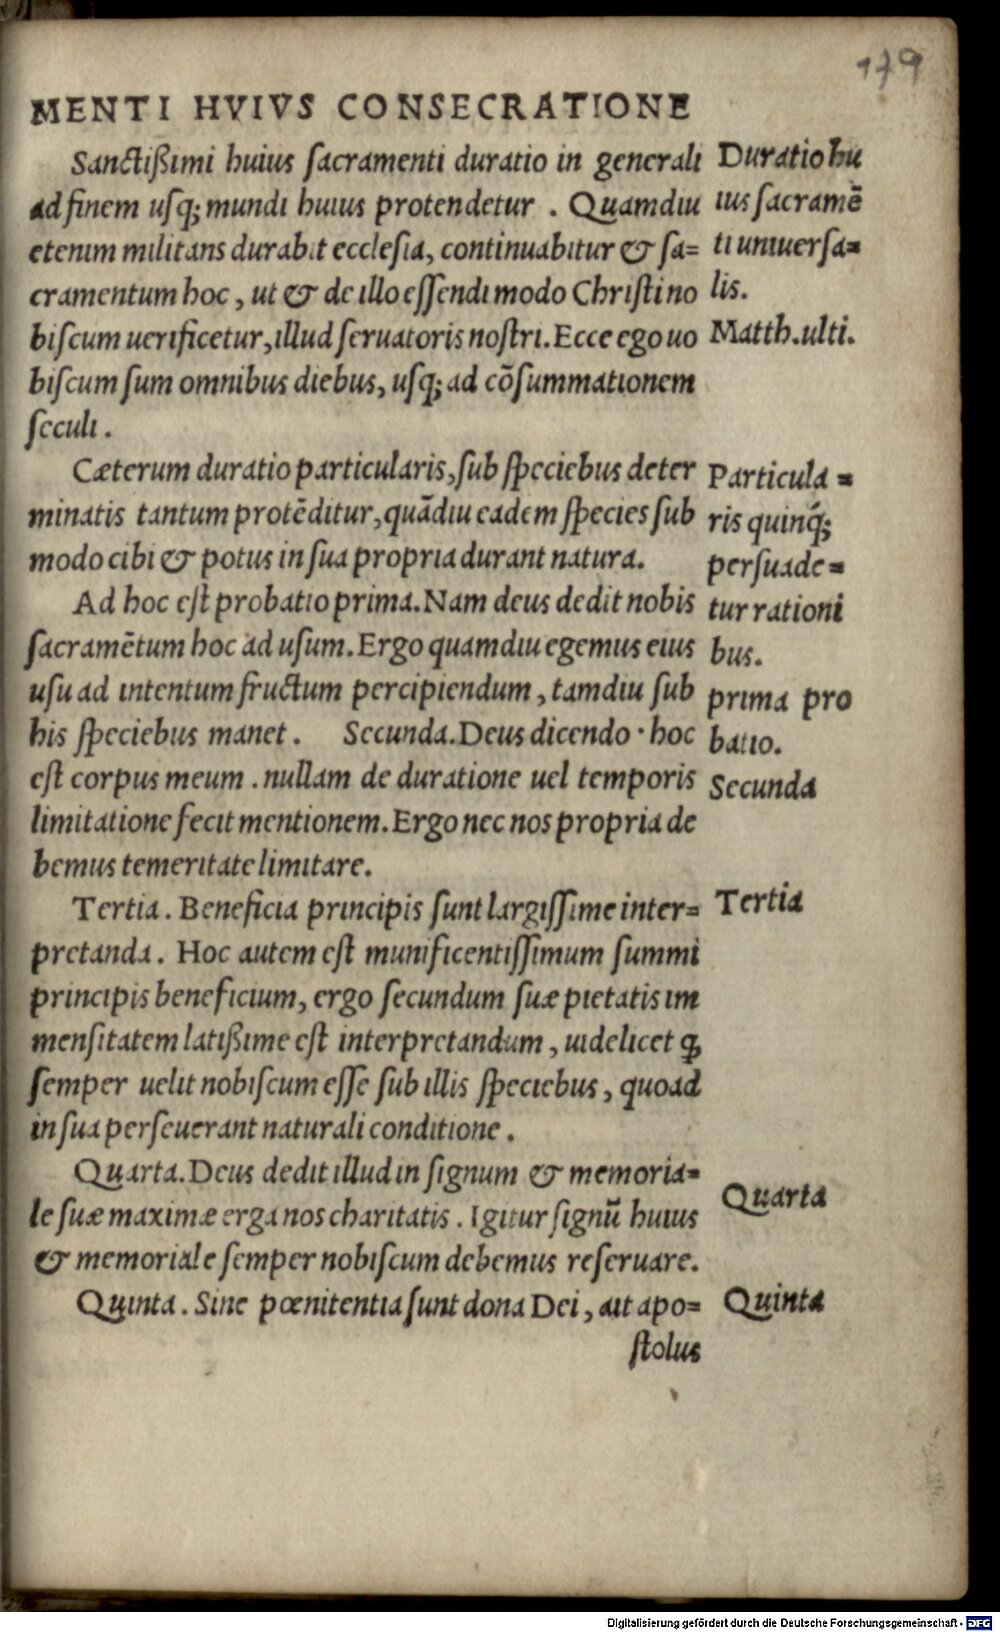 179
MENTI HVIVS CONSECRATIONE
Sanctißimi huius sacramenti duratio in generali
ad finem usq; mundi huius protendetur . Quamdiu
etenim militans durabit ecclesia, continuabitur & sa=
cramentum hoc, ut & de illo essendi modo Christi no
biscum uerificetur, illud seruatoris nostri. Ecce ego uo
biscum sum omnibus diebus, usq; ad cõsummationem
seculi .
Cæterum duratio particularis, sub speciebus deter
minatis tantum protẽditur, quãdiu eadem species sub
modo cibi & potus in sua propria durant natura.
Ad hoc est probatio prima. Nam deus dedit nobis
sacramẽtum hoc ad usum. Ergo quamdiu egemus eius
usu ad intentum fructum percipiendum, tamdiu sub
his speciebus manet . Secunda. Deus dicendo · hoc
est corpus meum . nullam de duratione uel temporis
limitatione fecit mentionem. Ergo nec nos propria de
bemus temeritate limitare.
Tertia . Beneficia principis sunt largissime inter=
pretanda . Hoc autem est munificentissimum summi
principis beneficium, ergo secundum suæ pietatis im
mensitatem latißime est interpretandum, uidelicet ꝙ
semper uelit nobiscum esse sub illis speciebus, quoad
in sua perseuerant naturali conditione .
Quarta. Deus dedit illud in signum & memoria=
le suæ maximæ erga nos charitatis . Igitur signũ huius
& memoriale semper nobiscum debemus reseruare.
Quinta . Sine pœnitentia sunt dona Dei, ait apo=
stolus
Duratio hu
ius sacramẽ
ti uniuersa=
lis.
Matth. ulti.
Particula =
ris quinq́;
persuade=
tur rationi
bus.
prima pro
batio.
Secunda
Tertia
Quarta
Quinta
Digitalisierung gefördert durch die Deutsche Forschungsgemeinschaft - DFG